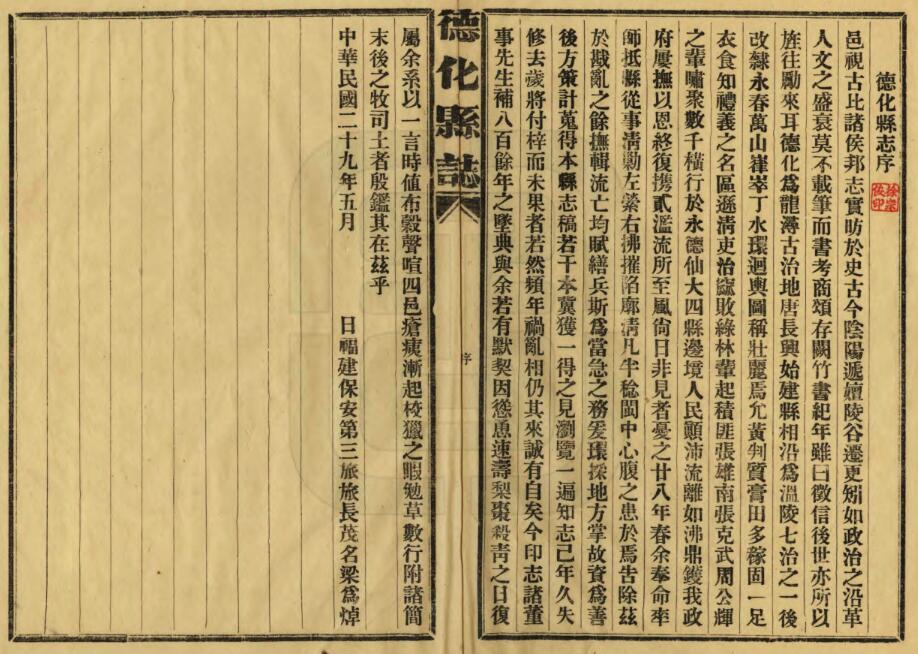 德化縣志序
邑視古比諸侯邦志實昉於史古今陰陽遞嬗陵谷遷更矧如政治之沿革
人文之盛衰莫不載筆而書考商頌存闕竹書紀年雖曰徵信後世亦所以
旌往勵來耳德化爲龍潯古治地唐長興始建縣相沿爲溫陵七治之一後
改隸永春萬山崔崒丁水環迴輿圖稱壯麗焉尤黃刲質膏田多稼固一足
衣食知禮義之名區遜淸吏治窳敗綠林輩起積匪張雄南張克武周公輝
之輩嘯聚數千橫行於永德仙大四縣邊境人民顚沛流離如沸鼎鑊我政
府屢撫以恩終復攜貳濫流所至風尙日非見者憂之廿八年春余奉命率
師抵縣從事淸勦左縈右拂摧陷廓淸凡半稔閩中心腹之患於焉吿除茲
於戡亂之餘撫輯流亡均賦繕兵斯爲當急之務爰環採地方掌故資爲善
後方策計蒐得本縣志稿若干本冀獲一得之見瀏覽一遍知志已年久失
修去歲將付梓而未果者若然頻年禍亂相仍其來誠有自矣今印志諸董
事先生補八百餘年之墜典與余若有默契因慫恿速壽梨棗殺靑之日復
德化縣誌
序
屬余系以一言時值布穀聲喧四邑瘡痍漸起校獵之暇勉草數行附諸簡
末後之牧司土者殷鑑其在茲乎
中華民國二十九年五月 日福建保安第三旅旅長茂名梁爲焯